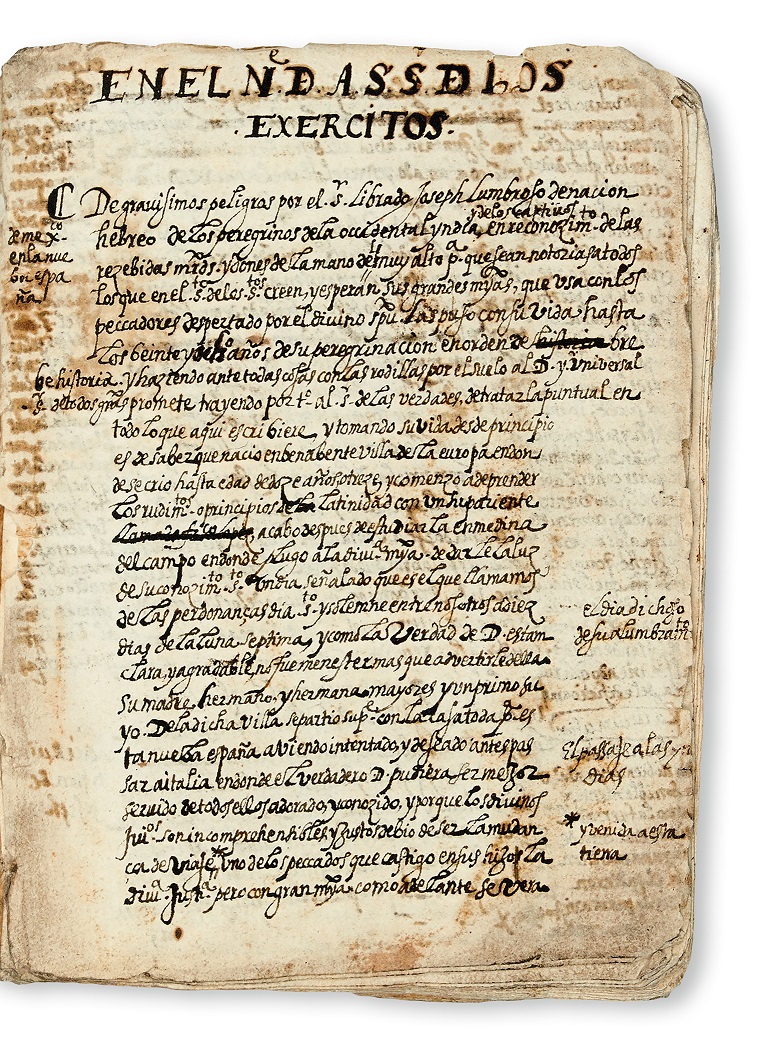 EN EL Ne. D. A. S. S. D LOS
.EXERCITOS.
De gravisimos peligros por el .S. Librado Joseph Lumbroso de nacion
y de los captivos
hebreo de los peregrinos de la occidental yndia, en reconozimto. de las
de mexco.
en la nue
ba espa
ña
rezebidas mrds. y dones de la mano del muy alto pa. que sean notorias a todos
los que en el .Sto. de los .Stos. creen, y esperan sus grandes mjas, que usa con los
peccadores despertado por el divino spu. las puso con su Vida hasta
los beinte y años de su peregrinacion en orden de historia bre
be historia. y haziendo ante todas cosas con las rodillas por el suelo al D. y universal
.S. de todos gras promete trayendo por to. al .S. de las verdades, de tratar la puntual en
todo lo que aqui escribiere, y tomando su vida desde principio
es de saber que nacio en benabente villa de la europa en don
de se crio hasta edad de doze años o treze, y comenzo a deprender
los rudimtos. o principios de la latinidad con un su pariente
acabo despues de estudiar la en medina
del campo en donde plugo a la divina mja. de dar le la luz
de su conozimto. .Sto. Un dia señalado que es el que llamamos
de las perdonanças dia .Sto. y solemne entre nosotros a diez
dias de la luna septima, y como la Verdad de D. es tam
clara, y agradable, no fue menester mas que advertirle della
el dia dichoso
de su alumbramto
su madre, hermano, y hermana mayores y un primo su
yo. De la dicha villa se partio su pe. con la casa toda pa. es
ta nueba españa aviendo intentado, y deseado antes pas
El passaje a las yn
dias
sar a italia en donde el verdadero D. pudiera ser mejor
servido de todos ellos adorado, y conozido, y porque los divinos
Juios. son incomprehensibles y justos debio de ser la mudan
ça de viaje,* uno de los peccados que castigo en sus hijos la
* y benida a esta
tierra
diva. Justa. pero con gran mja. como adelante se vera.